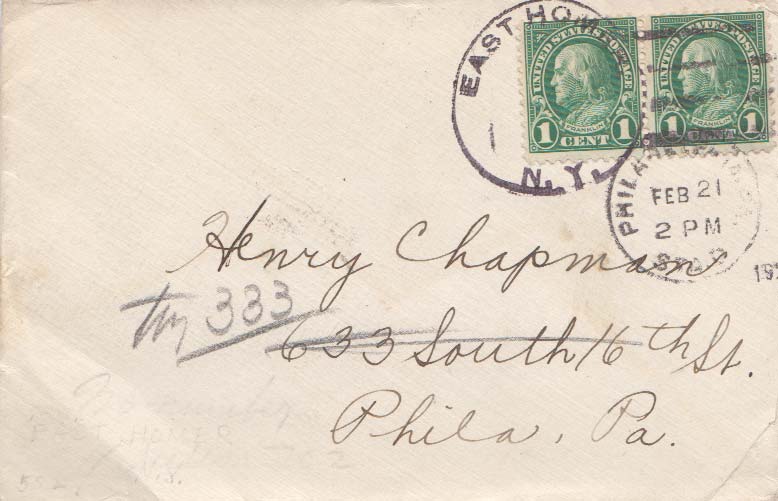 EAST HOM
N.Y.
UNITED STATES POSTAGE
1 FRANKLIN 1
CENT
UNITED STATES POSTAGE
1 FRANKLIN 1
CENT
PHILA
FEB 21
2 PM
192
Henry Chapman
Try 333
633 South 16th St.
Phila, Pa.
EAST HOMER
N.Y.